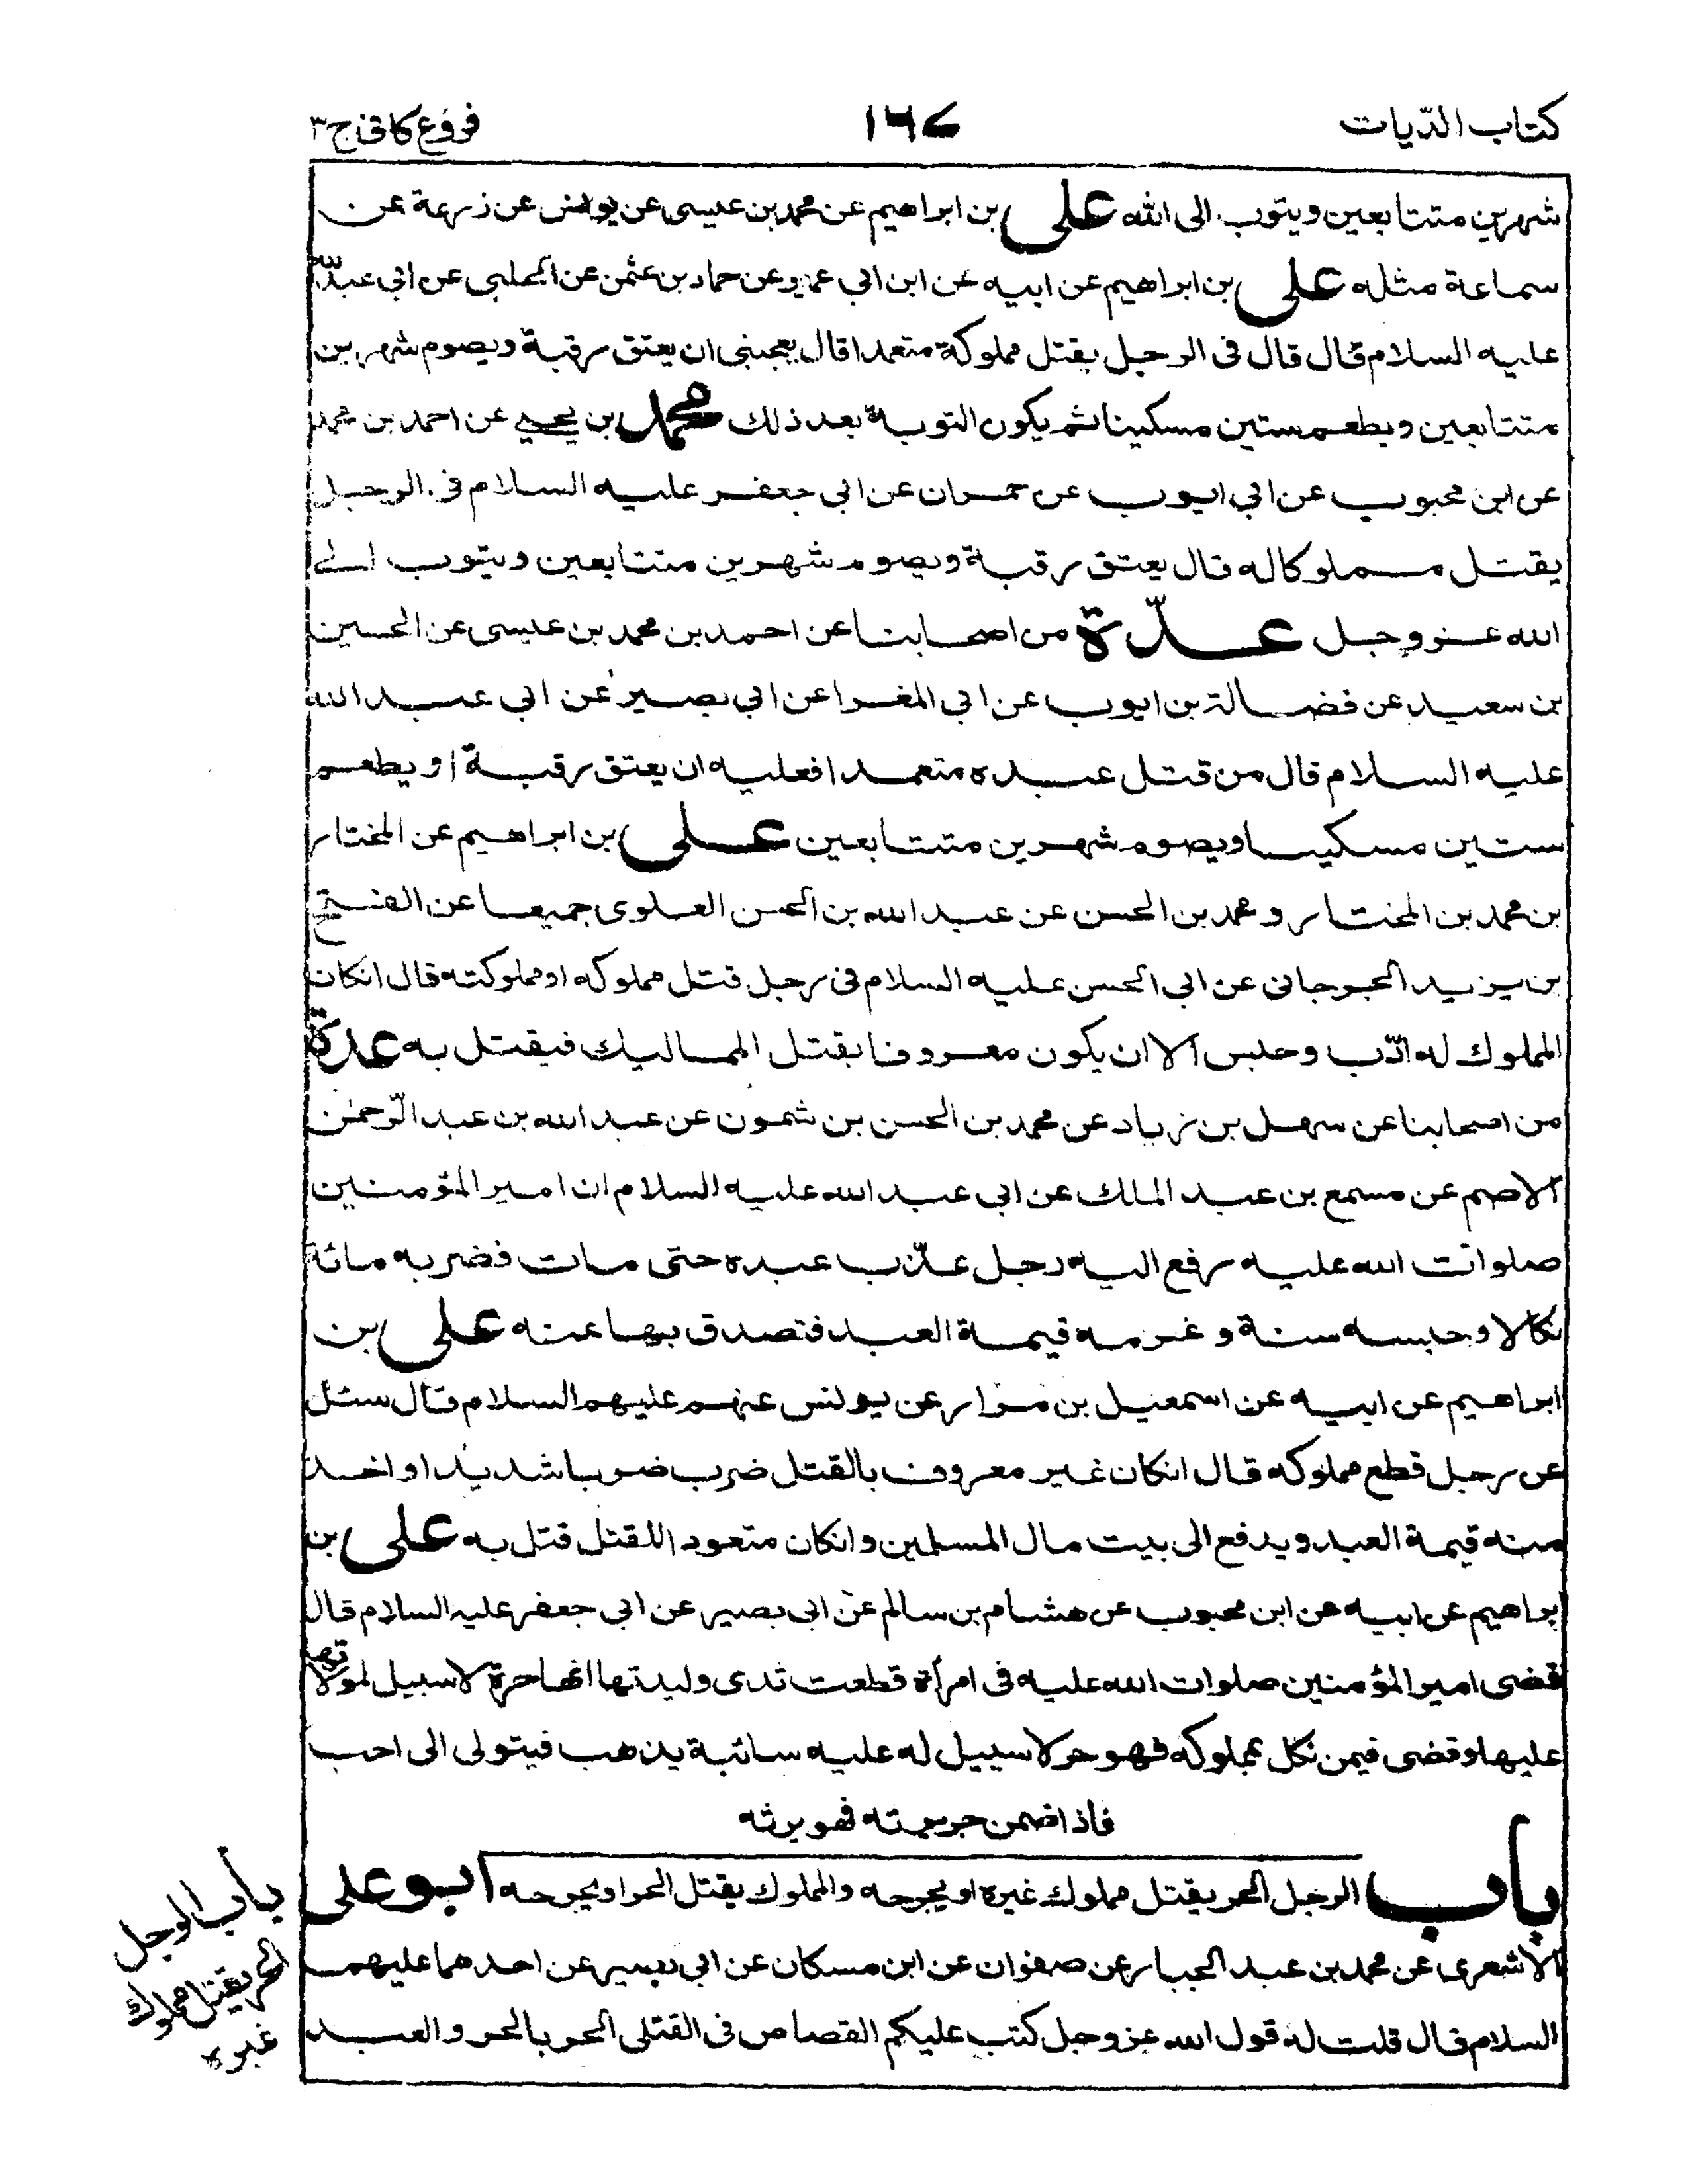 كتاب الدّيات
١٦٧
فروع كافى ج ٣
شهرين متتابعين ويتوب الى الله على بن ابراهيم عن محمد بن عيسى عن يونس عن زرعة عن
سماعة مثله على بن ابراهيم عن ابيه عن ابن ابي عمير عن حماد بن عثمن عن الحلبى عن ابي عبد الله
عليه السلام قال قال فى الرجل يقتل مملوكه متعمدا قال يعجبنى ان يعتق رقبة ويصوم شهرين
متتابعين ويطعم ستين مسكينا ثم يكون التوبة بعد ذلك محمد بن يحيى عن احمد بن محمد
عن ابن محبوب عن ابي ايوب عن حمران عن ابي جعفر عليه السلام فى الرجل
يقتل مملوكا له قال يعتق رقبة ويصوم شهرين متتابعين ويتوب الى
الله عز وجل عدّة من اصحابنا عن احمد بن محمد بن عيسى عن الحسين
بن سعيد عن فضالة بن ايوب عن ابي المغرا عن ابي بصير عن ابي عبد الله
عليه السلام قال من قتل عبده متعمدا فعليه ان يعتق رقبة او يطعم
ستين مسكينا ويصوم شهرين متتابعين على بن ابراهيم عن المختار
بن محمد بن المختار و محمد بن الحسن عن عبد الله بن الحسن العلوى جميعا عن الفتح
بن يزيد الجرجانى عن ابي الحسن عليه السلام فى رجل قتل مملوكه او مملوكته قال انكان
المملوك له ادّب وحبس الا ان يكون معروفا بقتل المماليك فيقتل به عدة
من اصحابنا عن سهل بن زياد عن محمد بن الحسن بن شمون عن عبد الله بن عبد الرّحمن
الاصم عن مسمع بن عبد الملك عن ابي عبد الله عليه السلام ان امير المؤمنين
صلوات الله عليه رفع اليه رجل عذّب عبده حتى مات فضربه مائة
نكالا وحبسه سنة و غرمه قيمة العبد فتصدق بها عنه على بن
ابراهيم عن ابيه عن اسمعيل بن مرار عن يونس عنهم عليهم السلام قال سئل
عن رجل قطع مملوكه قال انكان غير معروف بالقتل ضرب ضربا شديدا واخذ
منه قيمة العبد ويدفع الى بيت مال المسلمين وانكان متعودا للقتل قتل به على بن
ابراهيم عن ابيه عن ابن محبوب عن هشام بن سالم عن ابى بصير عن ابي جعفر عليه السلام قال
قضى امير المؤمنين صلوات الله عليه فى امرأة قطعت ثدى وليدتها انها حرة لا سبيل لمولاتها
عليها وقضى فيمن نكل بمملوكه فهو حر لا سبيل له عليه سائبة يذهب فيتولى الى احب
فاذا ضمن جريرته فهو يرثه
باب الرجل الحر يقتل مملوك غيره او يجرحه والمملوك يقتل الحر او يجرحه ابو على
الاشعرى عن محمد بن عبد الجبار عن صفوان عن ابن مسكان عن ابي بصير عن احدهما عليهما
السلام قال قلت له قول الله عز وجل كتب عليكم القصاص فى القتلى الحر بالحر والعبد
باب الرجل
الحر يقتل مملوك
غيره